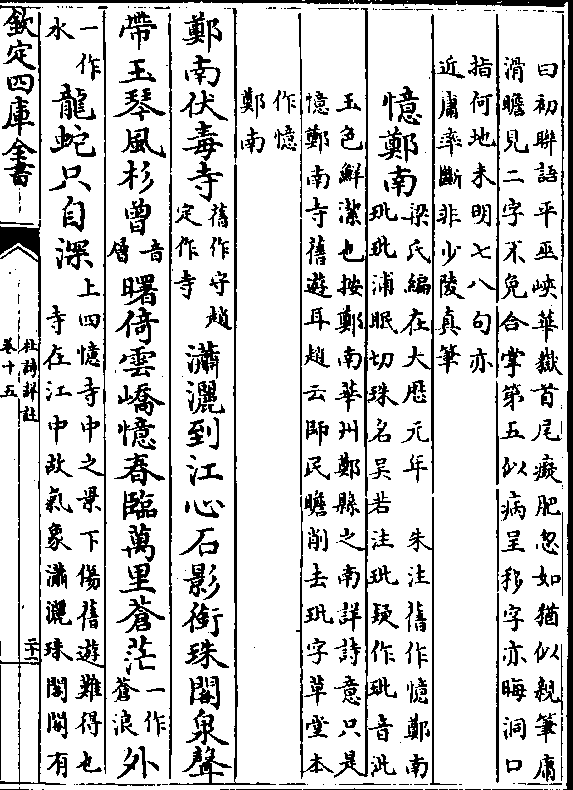 曰初聯語平巫峽華嶽首尾癡肥忽如猶似親筆庸
滑瞻見二字不免合掌第五似病呈移字亦晦洞口
指何地未明七八句亦
近庸率斷非少陵真筆
憶鄭南
梁氏編在大厯元年 朱注舊作憶鄭南
玭玭蒲眠切珠名吳若注玭疑作玼音泚
玉色鮮潔也按鄭南華州鄭縣之南詳詩意只是
憶鄭南寺舊遊耳趙云師民瞻削去玭字草堂本
作憶
鄭南
鄭南伏毒寺舊作守趙定作寺瀟灑到江心石影銜珠閣泉聲
帶玉琴風杉曾音層曙倚雲嶠憶春臨萬里蒼茫一作蒼浪外
一作水龍蛇只自深上四憶寺中之景下傷舊遊難得也
寺在江中故氣象瀟灑珠閣閣有
欽定四庫全書
杜詩詳註
卷十五
二十二